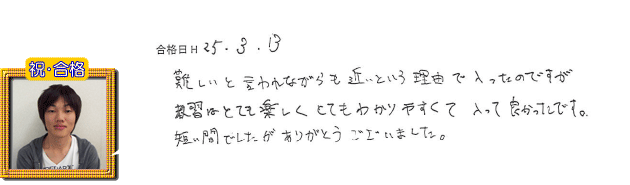 合格日 H 25.3.13
祝・合格
難しいと言われながらも近いという理由で入ったのですが
教習はとても楽しくとてもわかりやすくて入って良かったです。
短い間でしたがありがとうございました。